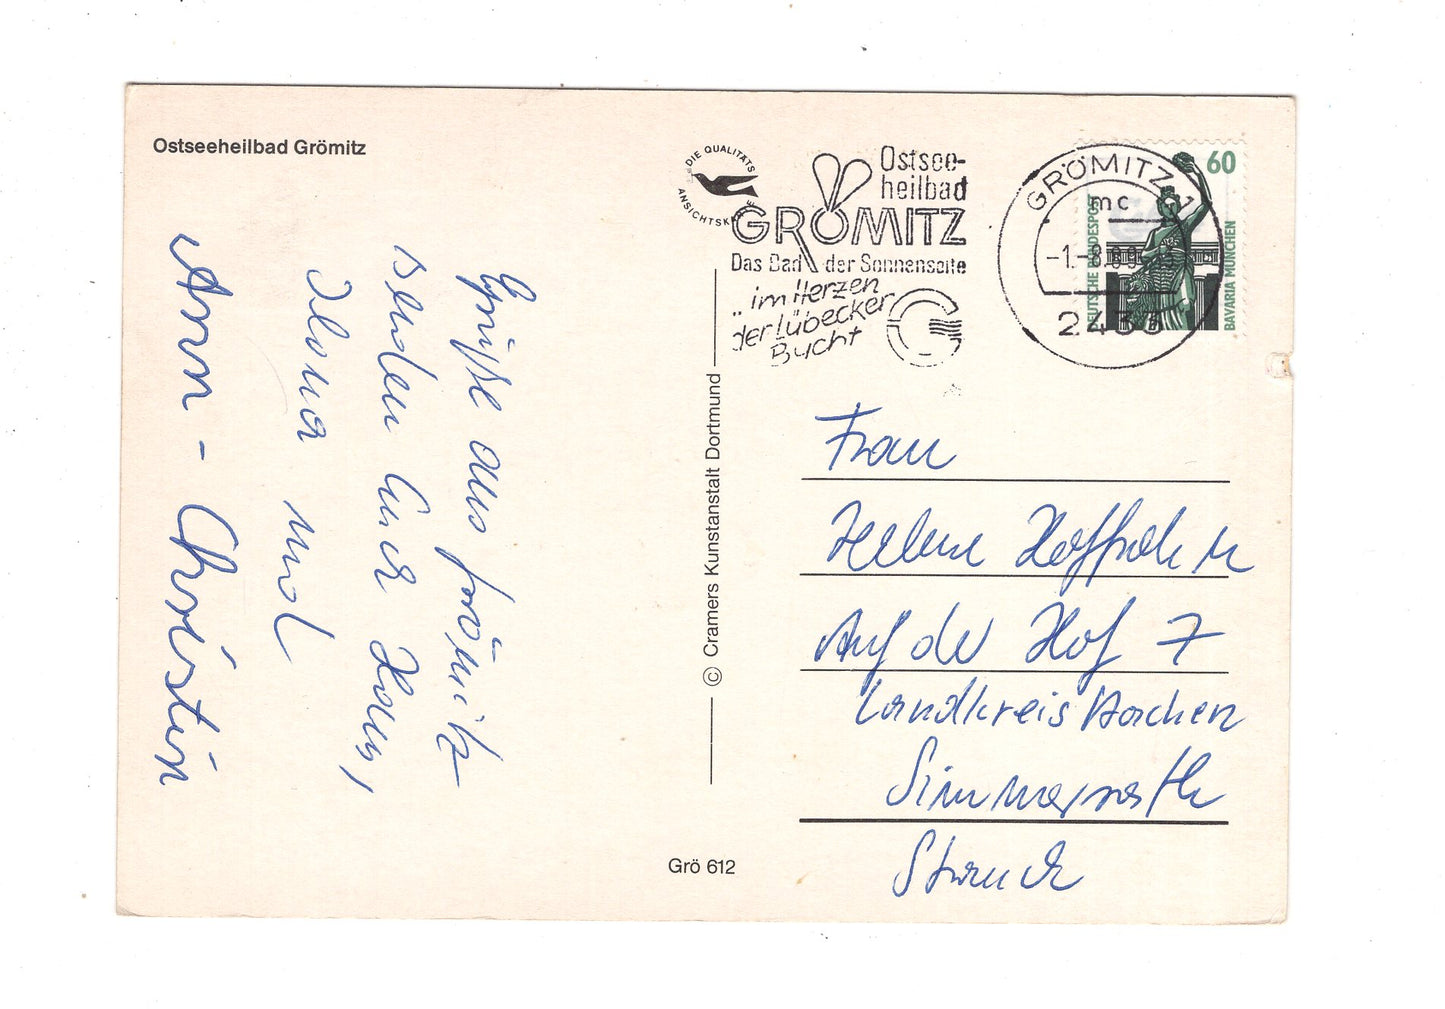 Ostseeheilbad Grömitz
Grüße aus Grömitz
senden Euch Hans,
Ilona und
Ann-Christin
© Cramers Kunstanstalt Dortmund
Grö 612
DIE QUALITÄTS
ANSICHTSKARTE
Ostsee-
heilbad
GRÖMITZ
Das Bad der Sonnenseite
... im Herzen
der Lübecker
Bucht
GRÖMITZ 1
mc
-1.-8.89
2433
60
DEUTSCHE BUNDESPOST
BAVARIA MÜNCHEN
Frau
Helene
Auf der Hof 7
Landkreis Aachen
Simmerath
Strauch